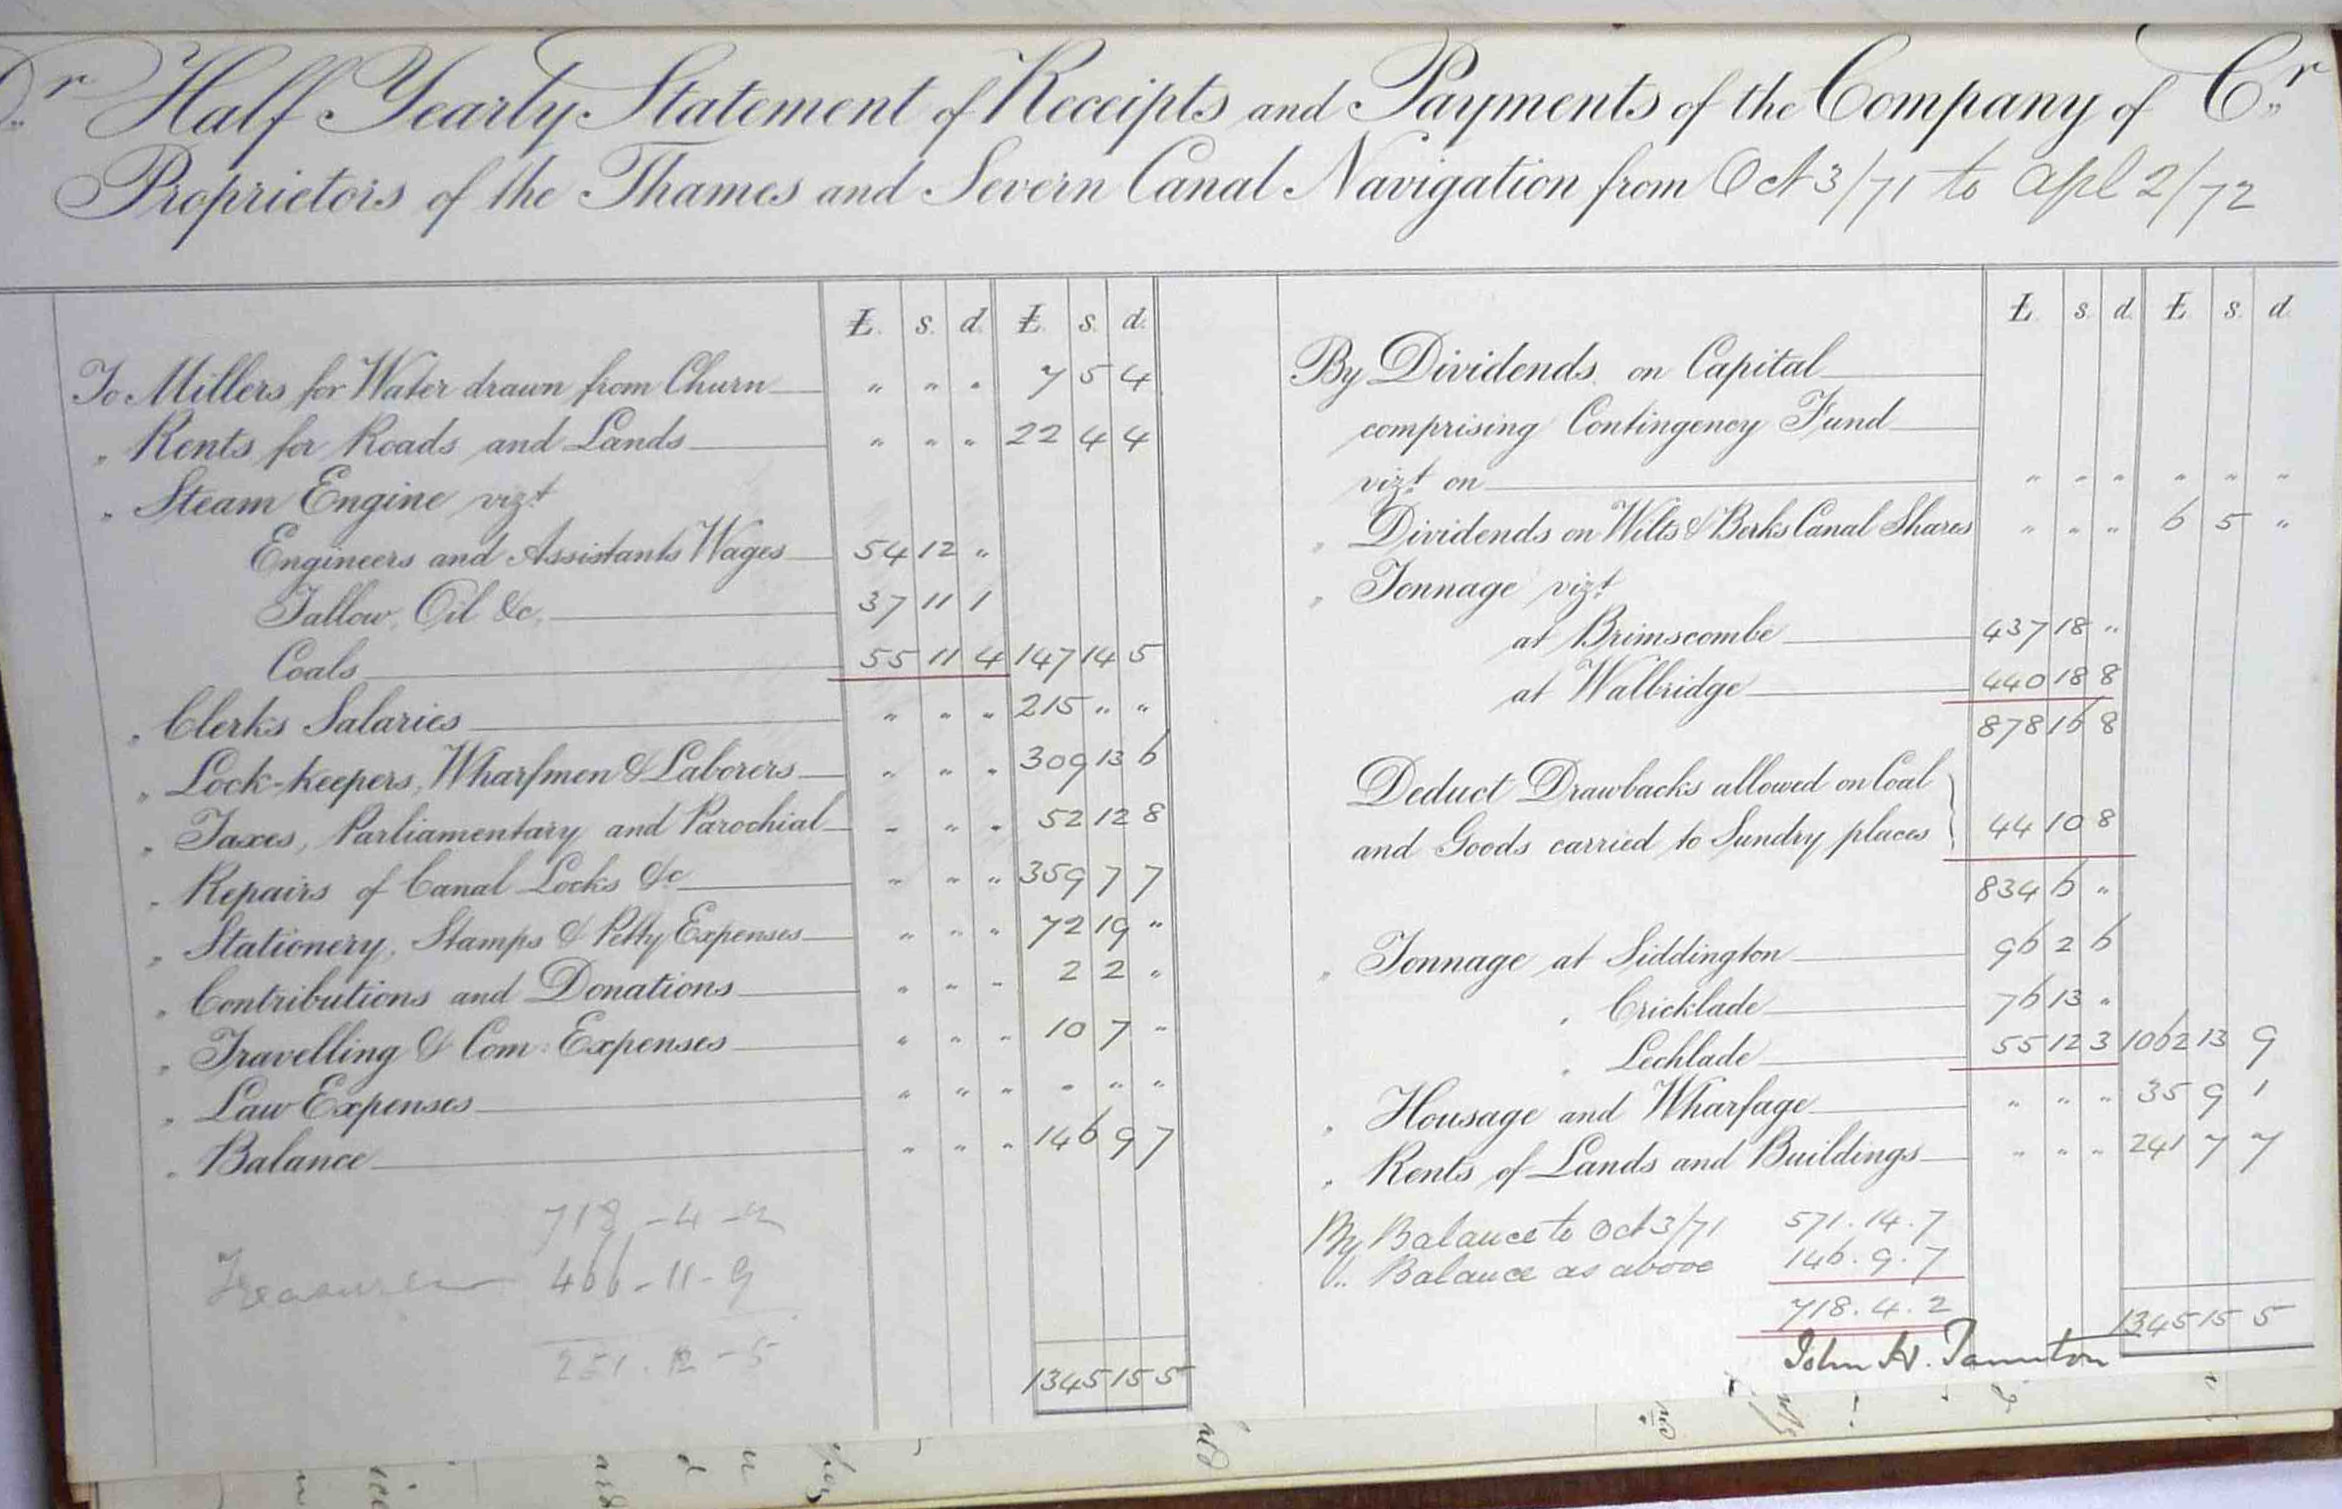 Dr Half Yearly Statement of Receipts and Payments of the Company of Cr
Proprietors of the Thames and Severn Canal Navigation from Oct 3/71 to Apl 2/72
£. s. d. £. s. d.
To Millers for Water drawn from Churn " " " 7 5 4
" Rents for Roads and Lands " " " 22 4 4
" Steam Engine vizt
Engineers and Assistants Wages 54 12 "
Tallow, Oil &c. 37 11 1
Coals 55 11 4 147 14 5
" Clerks Salaries " " " 215 " "
" Lock-keepers, Wharfmen & Laborers " " " 309 13 6
" Taxes, Parliamentary and Parochial " " " 52 12 8
" Repairs of Canal Locks &c " " " 359 7 7
" Stationery, Stamps & Petty Expenses " " " 72 19 "
" Contributions and Donations " " " 2 2 "
" Travelling & Com: Expenses " " " 10 7 "
" Law Expenses " " " " " "
" Balance " " " 146 9 7
718 - 4 - 2
Treasurer 466 - 11 - 9
251 . 12 - 5
1345 15 5
£ s. d £ s. d
By Dividends on Capital
comprising Contingency Fund
vizt on " " " " " "
" Dividends on Wilts & Berks Canal Shares " " " 6 5 "
" Tonnage vizt
at Brimscombe 437 18 "
at Walbridge 440 18 8
878 16 8
Deduct Drawbacks allowed on Coal
and Goods carried to Sundry places 44 10 8
834 6 "
" Tonnage at Siddington 96 2 6
" Cricklade 76 13 "
" Lechlade 55 12 3 1062 13 9
" Housage and Wharfage " " " 35 9 1
" Rents of Lands and Buildings " " " 241 7 7
By Balance to Oct 3/71 571 . 14 . 7
" Balance as above 146 . 9 . 7
718 . 4 . 2
1345 15 5
John H. Taunton